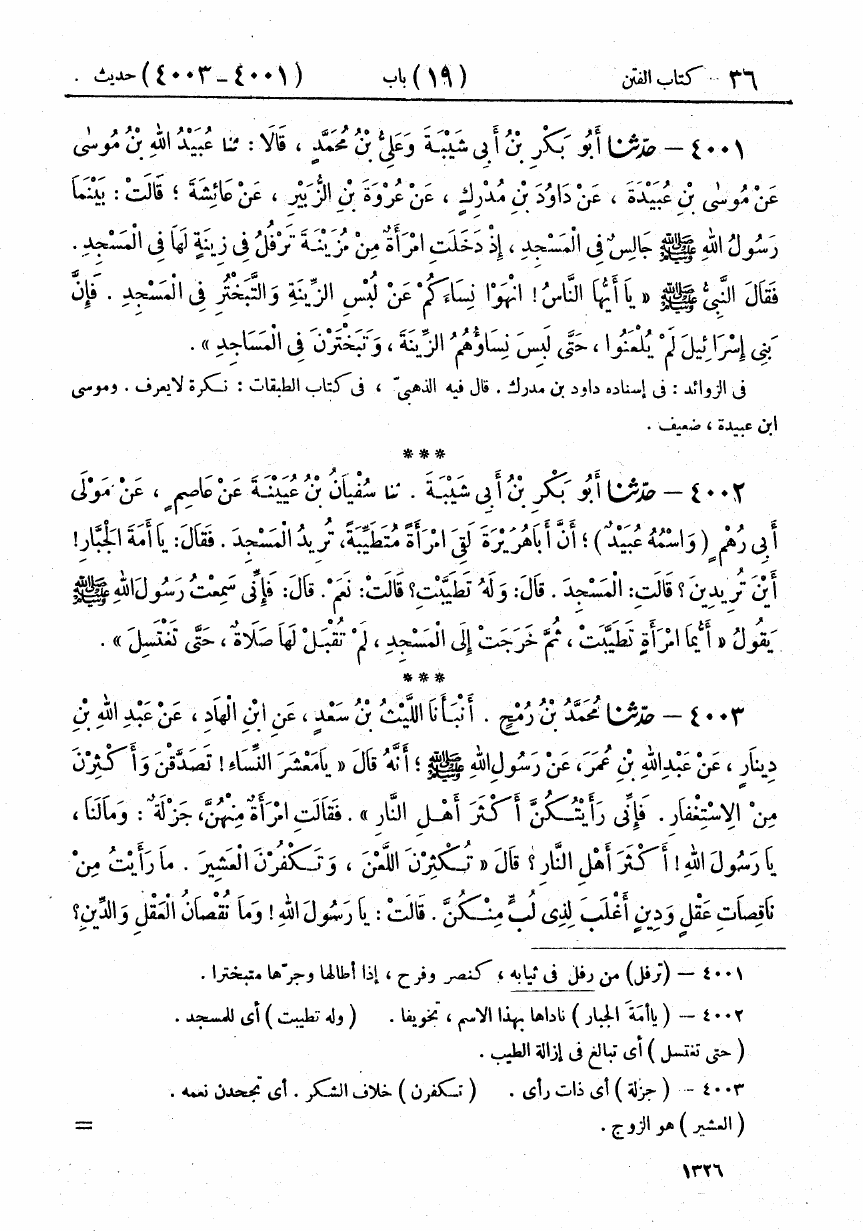 ٣٦ - كتاب الفتن (١٩) باب (٤٠٠١ - ٤٠٠٣) حديث .
٤٠٠١ — حدّثنا أَبُو بَكْرِ بْنُ أَبِي شَيْبَةَ وَعَلِيُّ بْنُ مُحَمَّدٍ ، قَالَا : ثنا عُبَيْدُ اللهِ بْنُ مُوسٰى
عَنْ مُوسٰى بْنِ عُبَيْدَةَ ، عَنْ دَاوُدَ بْنِ مُدْرِكٍ ، عَنْ عُرْوَةَ بْنِ الزُّبَيْرِ ، عَنْ عَائِشَةَ ؛ قَالَتْ : بَيْنَمَا
رَسُولُ اللهِ ﷺ جَالِسٌ فِي الْمَسْجِدِ ، إِذْ دَخَلَتِ امْرَأَةٌ مِنْ مُزَيْنَةَ تَرْفُلُ فِي زِينَةٍ لَهَا فِي الْمَسْجِدِ .
فَقَالَ النَّبِيُّ ﷺ « يَا أَيُّهَا النَّاسُ ! انْهَوْا نِسَاءَكُمْ عَنْ لُبْسِ الزِّينَةِ وَالتَّبَخْتُرِ فِي الْمَسْجِدِ . فَإِنَّ
بَنِي إِسْرَائِيلَ لَمْ يُلْعَنُوا ، حَتَّى لَبِسَ نِسَاؤُهُمُ الزِّينَةَ ، وَتَبَخْتَرْنَ فِي الْمَسَاجِدِ » .
فى الزوائد : فى إسناده داود بن مدرك . قال فيه الذهبىّ ، فى كتاب الطبقات : نكرة لا يعرف . وموسى
ابن عبيدة ، ضعيف .
***
٤٠٠٢ — حدّثنا أَبُو بَكْرِ بْنُ أَبِي شَيْبَةَ . ثنا سُفْيَانُ بْنُ عُيَيْنَةَ عَنْ عَاصِمٍ ، عَنْ مَوْلَى
أَبِي رُهْمٍ (وَاسْمُهُ عُبَيْدٌ) ؛ أَنَّ أَبَا هُرَيْرَةَ لَقِيَ امْرَأَةً مُتَطَيِّبَةً، تُرِيدُ الْمَسْجِدَ . فَقَالَ: يَا أَمَةَ الْجَبَّارِ!
أَيْنَ تُرِيدِينَ ؟ قَالَتِ: الْمَسْجِدَ . قَالَ: وَلَهُ تَطَيَّبْتِ؟ قَالَتْ: نَعَمْ. قَالَ: فَإِنِّي سَمِعْتُ رَسُولَ اللهِ ﷺ
يَقُولُ « أَيُّمَا امْرَأَةٍ تَطَيَّبَتْ ، ثُمَّ خَرَجَتْ إِلَى الْمَسْجِدِ ، لَمْ تُقْبَلْ لَهَا صَلَاةٌ ، حَتَّى تَغْتَسِلَ » .
***
٤٠٠٣ — حدّثنا مُحَمَّدُ بْنُ رُمْحٍ . أَنْبَأَنَا اللَّيْثُ بْنُ سَعْدٍ ، عَنِ ابْنِ الْهَادِ ، عَنْ عَبْدِ اللهِ بْنِ
دِينَارٍ ، عَنْ عَبْدِ اللهِ بْنِ عُمَرَ، عَنْ رَسُولِ اللهِ ﷺ ؛ أَنَّهُ قَالَ « يَا مَعْشَرَ النِّسَاءِ ! تَصَدَّقْنَ وَأَكْثِرْنَ
مِنْ الِاسْتِغْفَارِ. فَإِنِّي رَأَيْتُكُنَّ أَكْثَرَ أَهْلِ النَّارِ » . فَقَالَتِ امْرَأَةٌ مِنْهُنَّ، جَزْلَةٌ : وَمَا لَنَا ،
يَا رَسُولَ اللهِ ! أَكْثَرَ أَهْلِ النَّارِ ؟ قَالَ « تُكْثِرْنَ اللَّعْنَ ، وَتَكْفُرْنَ الْعَشِيرَ . مَا رَأَيْتُ مِنْ
نَاقِصَاتِ عَقْلٍ وَدِينٍ أَغْلَبَ لِذِي لُبٍّ مِنْكُنَّ . قَالَتْ : يَا رَسُولَ اللهِ ! وَمَا نُقْصَانُ الْعَقْلِ وَالدِّينِ؟
٤٠٠١ — (ترفل) من رفل فى ثيابه ، كنصر وفرح ، إذا أطالها وجرّها متبخترا .
٤٠٠٢ — ( ياأمَةَ الجبار ) ناداها بهذا الاسم ، تخويفا . ( وله تطيبت ) أى للمسجد .
( حتى تغتسل ) أى تبالغ فى إزالة الطيب .
٤٠٠٣ — ( جزلة ) أى ذات رأى . ( تكفرن ) خلاف الشكر . أى تجحدن نعمه .
( العشير ) هو الزوج . =
١٣٢٦